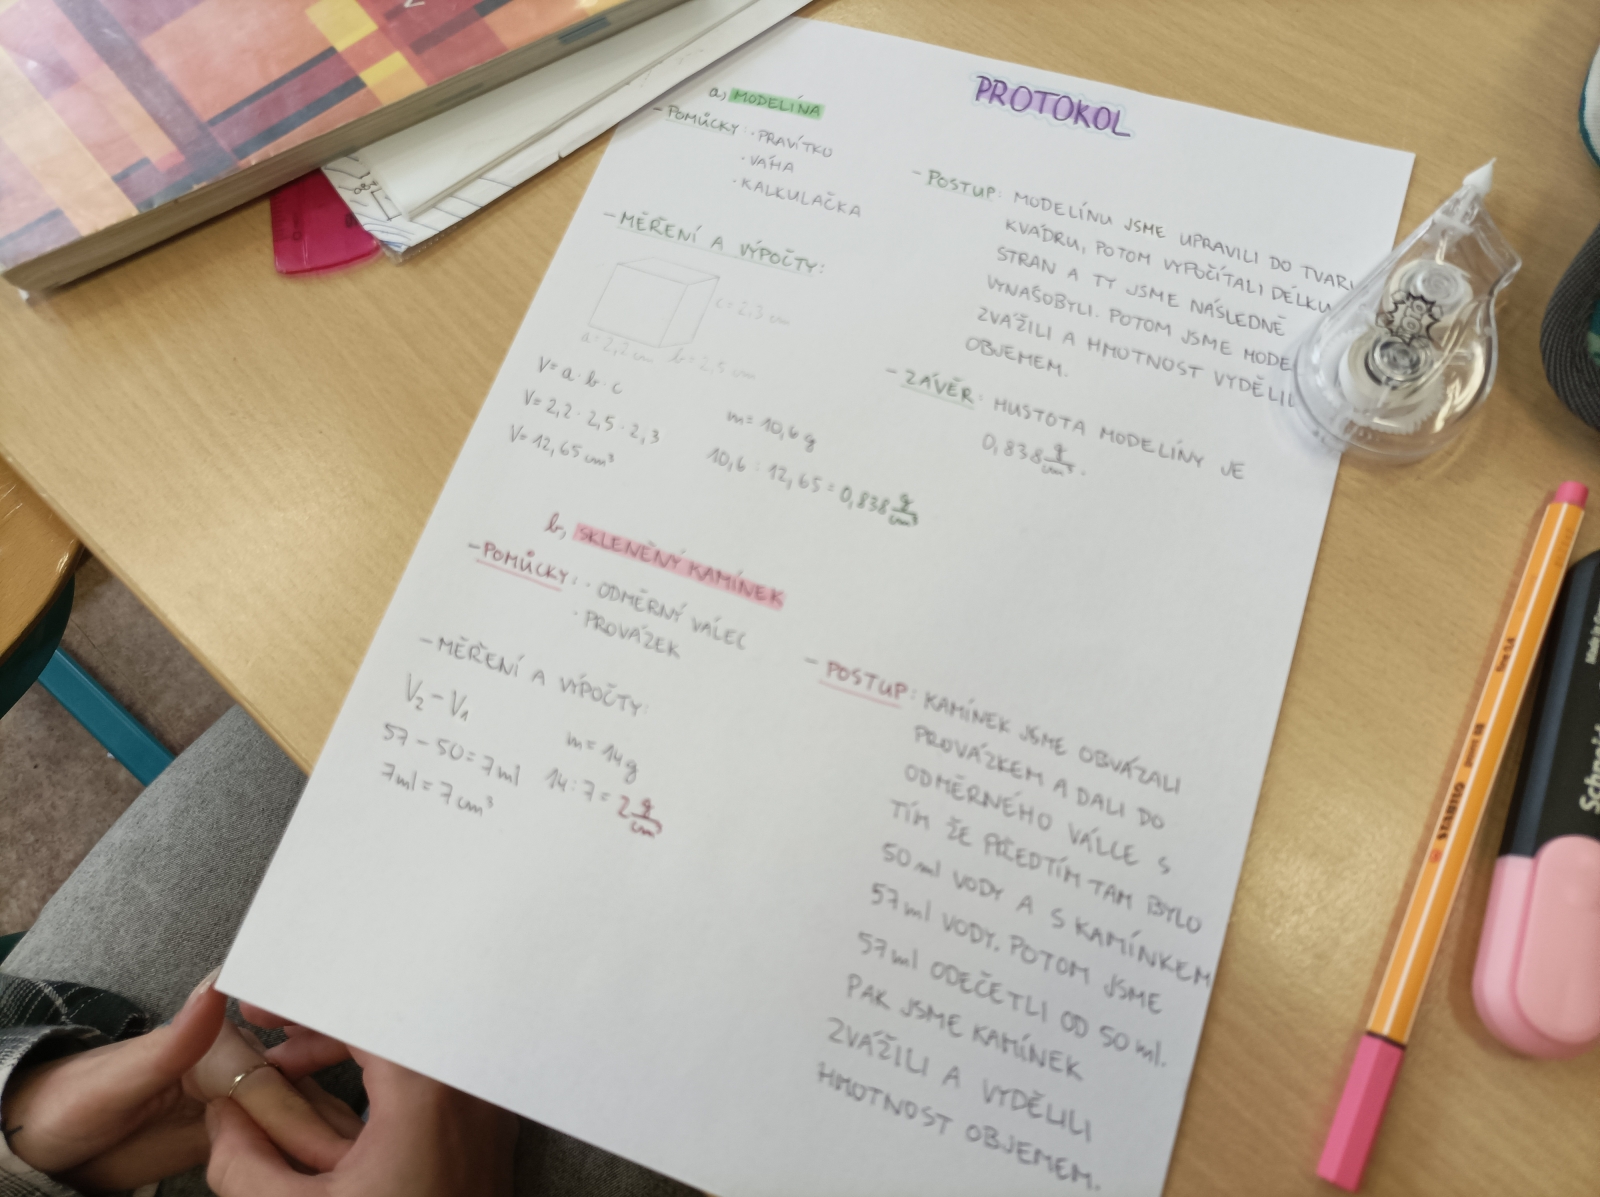 PROTOKOL
a) MODELÍNA
- POMŮCKY: · PRAVÍTKO
· VÁHA
· KALKULAČKA
- MĚŘENÍ A VÝPOČTY:
c = 2,3 cm
a = 2,2 cm b = 2,5 cm
V = a · b · c
V = 2,2 · 2,5 · 2,3
V = 12,65 cm³
m = 10,6 g
10,6 : 12,65 = 0,838 g/cm³
- POSTUP: MODELÍNU JSME UPRAVILI DO TVARU
KVÁDRU, POTOM VYPOČÍTALI DÉLKU
STRAN A TY JSME NÁSLEDNĚ
VYNÁSOBYLI. POTOM JSME MODE
ZVÁŽILI A HMOTNOST VYDĚLIL
OBJEMEM.
- ZÁVĚR: HUSTOTA MODELÍNY JE
0,838 g/cm³.
b) SKLENĚNÝ KAMÍNEK
- POMŮCKY: · ODMĚRNÝ VÁLEC
· PROVÁZEK
- MĚŘENÍ A VÝPOČTY:
V₂ - V₁
57 - 50 = 7 ml
7 ml = 7 cm³
m = 14 g
14 : 7 = 2 g/cm³
- POSTUP: KAMÍNEK JSME OBVÁZALI
PROVÁZKEM A DALI DO
ODMĚRNÉHO VÁLCE S
TÍM ŽE PŘEDTÍM TAM BYLO
50 ml VODY A S KAMÍNKEM
57 ml VODY. POTOM JSME
57 ml ODEČETLI OD 50 ml.
PAK JSME KAMÍNEK
ZVÁŽILI A VYDĚLILI
HMOTNOST OBJEMEM.
STABILO
Schneid